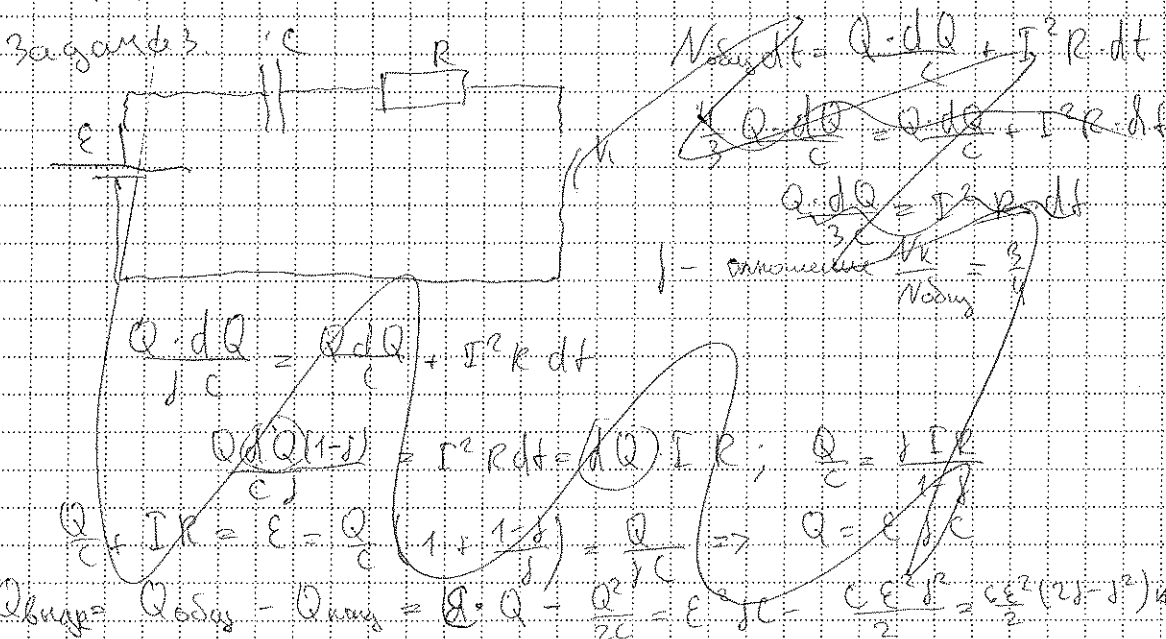 Задача 3.
C
R
ε
N_общ dt = Q·dQ/C + I² R·dt
4/3 Q·dQ/C = Q·dQ/C + I² R·dt
Q·dQ/3C = I² R dt
γ - отношение N_k/N_общ = 3/4
Q·dQ/γC = QdQ/C + I² R dt
QdQ(1-γ)/Cγ = I² R dt = (dQ)·I R ; Q/C = γIR/1-γ
Q/C + IR = ε = Q/C (1 + 1-γ/γ) = Q/γC => Q = εγC
Q общ - Q = ε·Q - Q²/2C = ε²γC - Cε²γ²/2 = Cε²/2 (2γ-γ²)